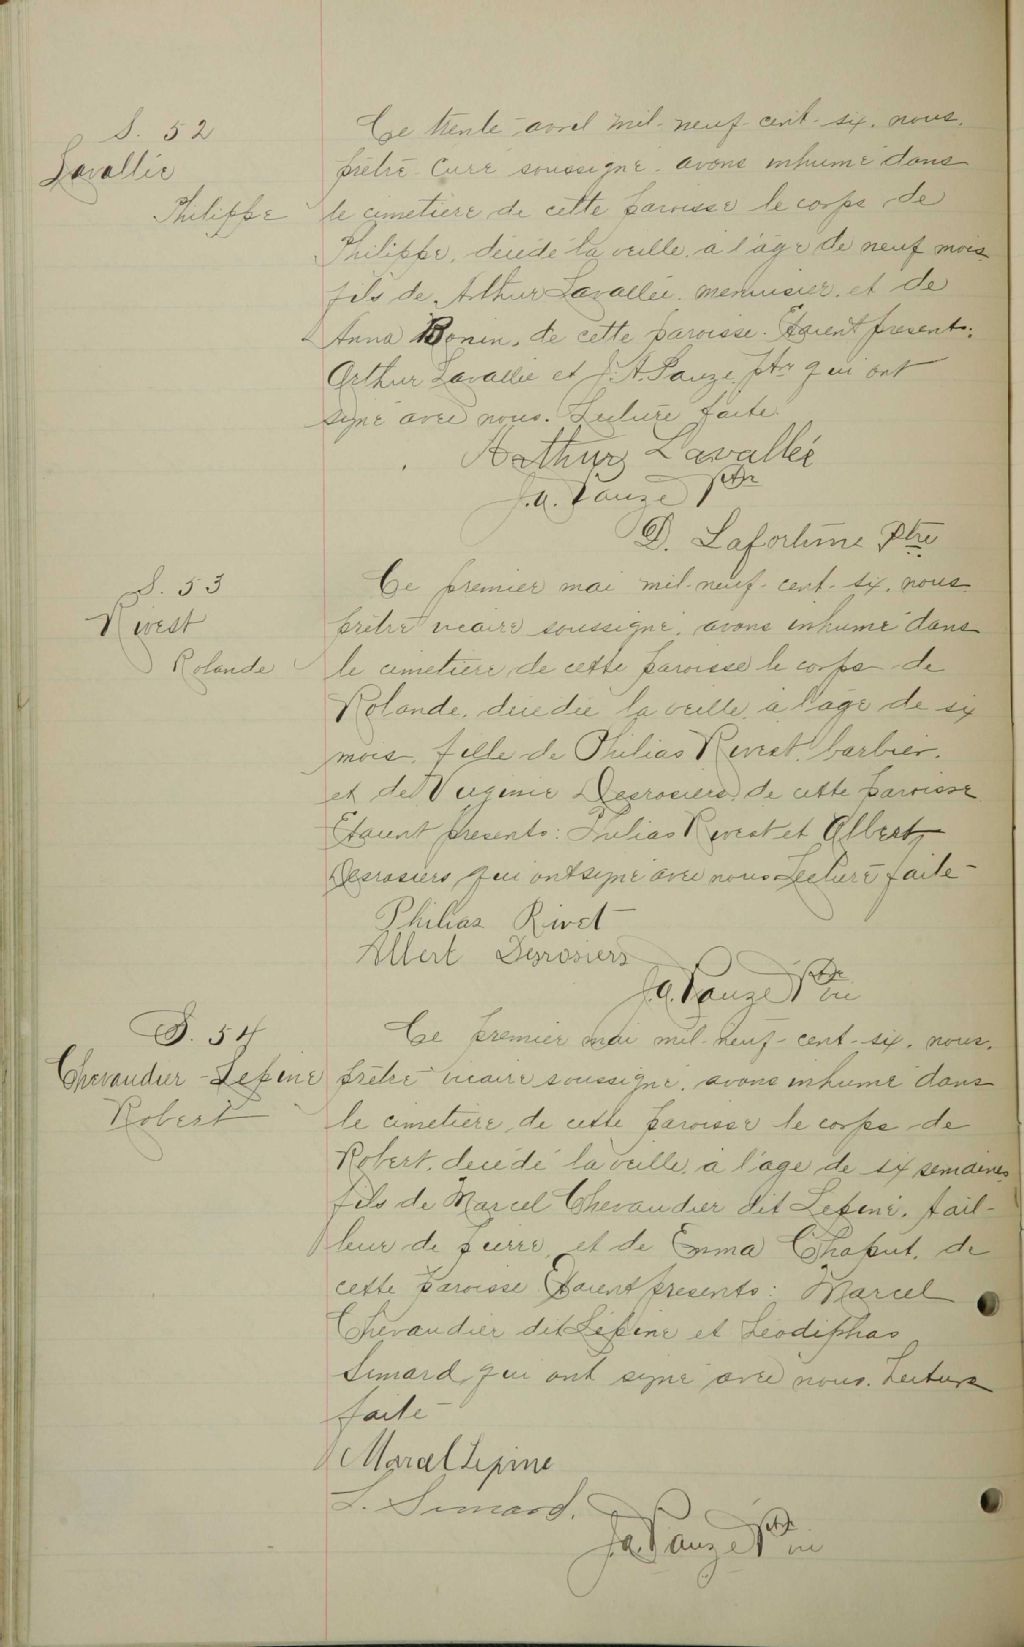 S. 52
Lavallée
Philippe
Ce trente avril mil-neuf-cent-six, nous,
prêtre-curé soussigné, avons inhumé dans
le cimetière de cette paroisse le corps de
Philippe, décédé la veille, à l'âge de neuf mois
fils de Arthur Lavallée, menuisier, et de
Anna Bonin, de cette paroisse. Etaient présents:
Arthur Lavallée et J. A. Pauzé Ptre qui ont
signé avec nous. Lecture faite.
Arthur Lavallée
J. A. Pauzé Ptre
D. Lafortune Ptre
S. 53
Rivest
Rolande
Ce premier mai mil-neuf-cent-six, nous
prêtre vicaire soussigné, avons inhumé dans
le cimetière de cette paroisse le corps de
Rolande, décédée la veille à l'âge de six
mois, fille de Philias Rivest, barbier,
et de Virginie Desrosiers, de cette paroisse
Etaient présents: Philias Rivest et Albert
Desrosiers qui ont signé avec nous Lecture faite-
Philias Rivet
Albert Desrosiers
J. A. Pauzé Ptre vic
S. 54
Chevaudier-Lépine
Robert
Ce premier mai mil-neuf-cent-six, nous,
prêtre vicaire soussigné, avons inhumé dans
le cimetière de cette paroisse le corps de
Robert, décédé la veille à l'âge de six semaines
fils de Marcel Chevaudier dit Lépine, tail-
leur de pierre, et de Emma Chaput, de
cette paroisse Etaient présents: Marcel
Chevaudier dit Lépine et Léodiphas
Simard, qui ont signé avec nous. Lecture
faite-
Marcel Lepine
L. Simard.
J. A. Pauzé Ptre vic